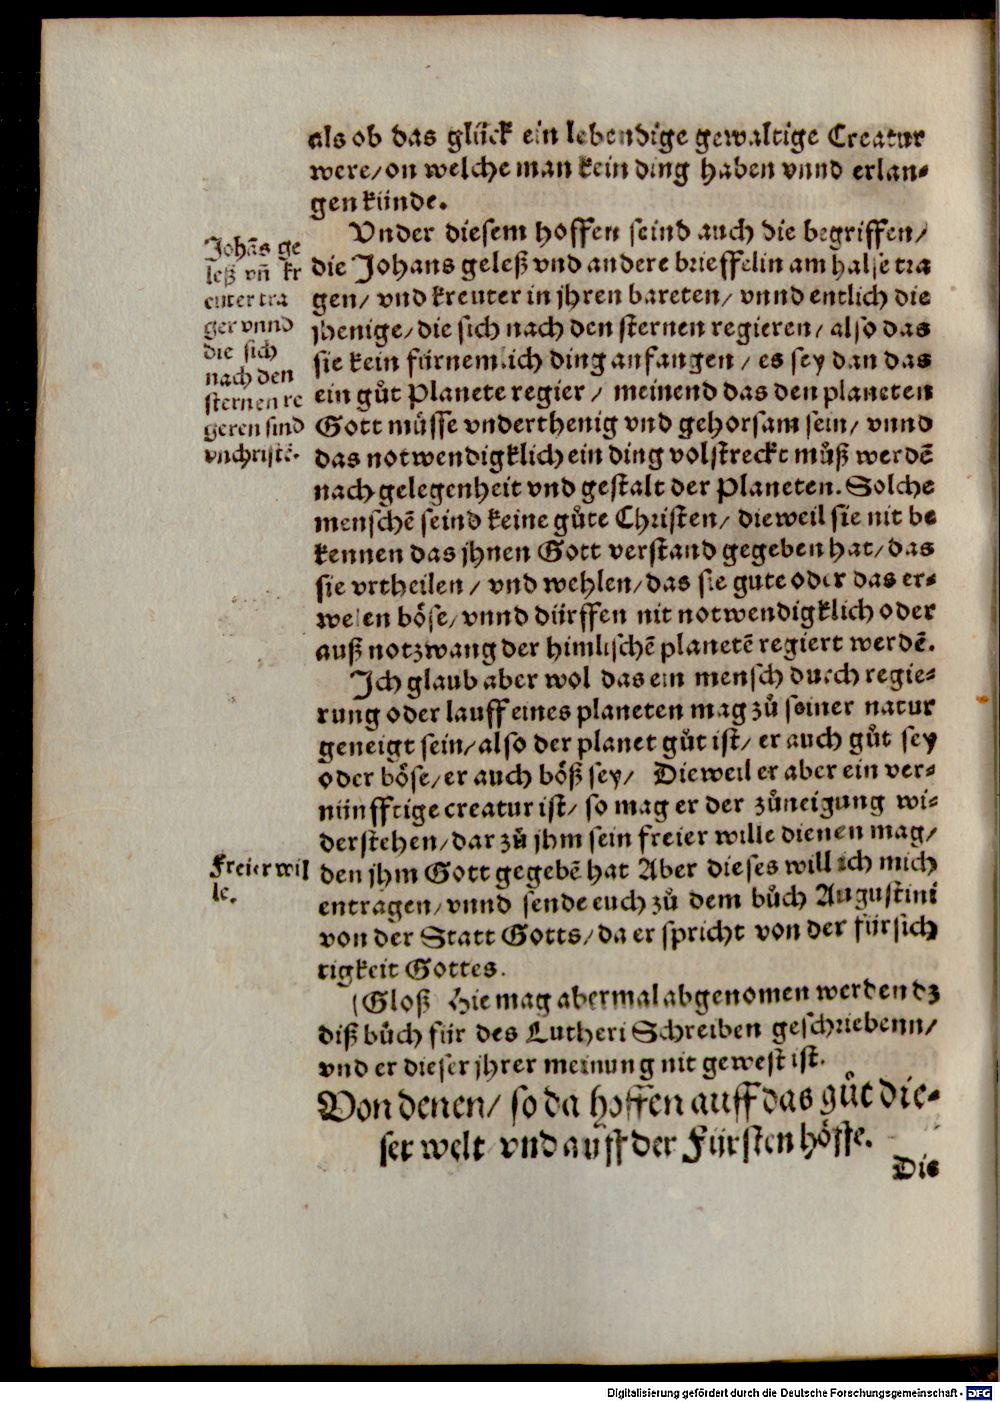 als ob das glück ein lebendige gewaltige Creatur
were/ on welche man kein ding haben vnnd erlan-
gen künde.
Vnder diesem hoffen seind auch die begriffen/
die Johans geleß vnd andere brieffelin am halse tra
gen/ vnd kreuter in jhren bareten/ vnnd entlich die
jhenige/ die sich nach den sternen regieren/ also das
sie kein fürnemlich ding anfangen/ es sey dan das
ein gůt Planete regier/ meinend das den planeten
Gott müsse vnderthenig vnd gehorsam sein/ vnnd
das notwendigklich ein ding volstreckt můß werdẽ
nach gelegenheit vnd gestalt der Planeten. Solche
menschẽ seind keine gůte Christen/ dieweil sie nit be
kennen das jhnen Gott verstand gegeben hat/ das
sie vrtheilen/ vnd wehlen/ das sie gute oder das er-
welen böse/ vnnd dürffen nit notwendigklich oder
auß notzwang der himlischẽ planetẽ regiert werdẽ.
Johãs ge
leß vñ kr
euter tra
ger vnnd
die sich
nach den
sternen re
geren sind
vnchristẽ.
Ich glaub aber wol das ein mensch durch regie-
rung oder lauff eines planeten mag zů seiner natur
geneigt sein/ also der planet gůt ist/ er auch gůt sey
oder böse/ er auch böß sey/ Dieweil er aber ein ver-
nünfftige creatur ist/ so mag er der zůneigung wi-
derstehen/ dar zů jhm sein freier wille dienen mag/
den jhm Gott gegebẽ hat Aber dieses will ich mich
entragen/ vnnd sende euch zů dem bůch Augustini
von der Statt Gotts/ da er spricht von der fürsich
tigkeit Gottes.
Freier wil
le.
(Gloß Hie mag abermal abgenomen werden dz
diß bůch für des Lutheri Schreiben geschriebenn/
vnd er dieser jhrer meinung nit gewest ist.
Von denen/ so da hoffen auff das gůt die-
ser welt vnd auff der Fürsten höffe.
Die
Digitalisierung gefördert durch die Deutsche Forschungsgemeinschaft - DFG